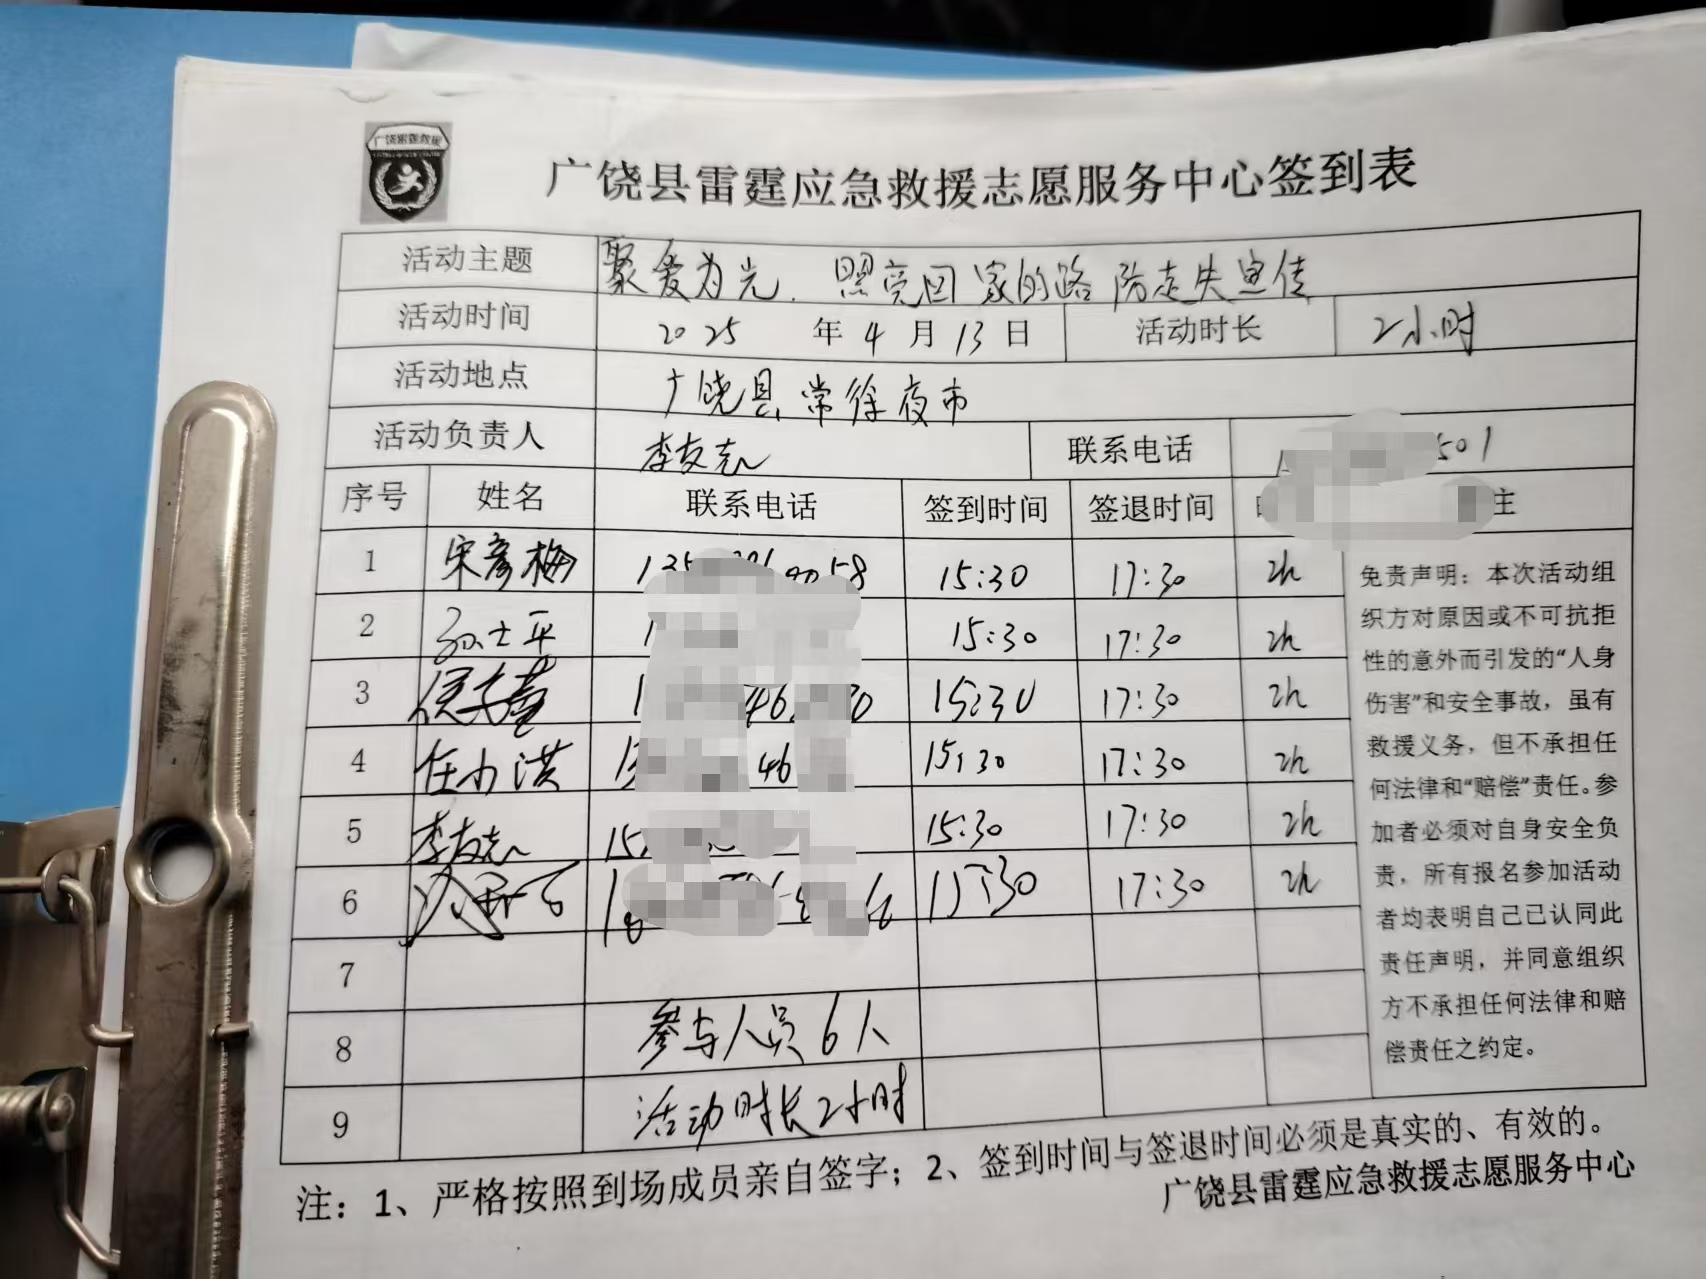 广饶雷霆救援
广饶县雷霆应急救援志愿服务中心签到表
活动主题 聚爱为光．照亮回家的路 防走失宣传
活动时间 2025 年 4 月 13 日 活动时长 2小时
活动地点 广饶县常徐夜市
活动负责人 李友志 联系电话 501
序号 姓名 联系电话 签到时间 签退时间 注
1 宋彦梅 135 58 15:30 17:30 2h
2 孙士平 1 15:30 17:30 2h
3 1 46 0 15:30 17:30 2h
4 任小洪 13 46 15:30 17:30 2h
5 李友志 15 15:30 17:30 2h
6 18 15:30 17:30 2h
7
8 参与人员6人
9 活动时长2小时
免责声明：本次活动组
织方对原因或不可抗拒
性的意外而引发的“人身
伤害”和安全事故，虽有
救援义务，但不承担任
何法律和“赔偿”责任。参
加者必须对自身安全负
责，所有报名参加活动
者均表明自己已认同此
责任声明，并同意组织
方不承担任何法律和赔
偿责任之约定。
注：1、严格按照到场成员亲自签字；2、签到时间与签退时间必须是真实的、有效的。
广饶县雷霆应急救援志愿服务中心